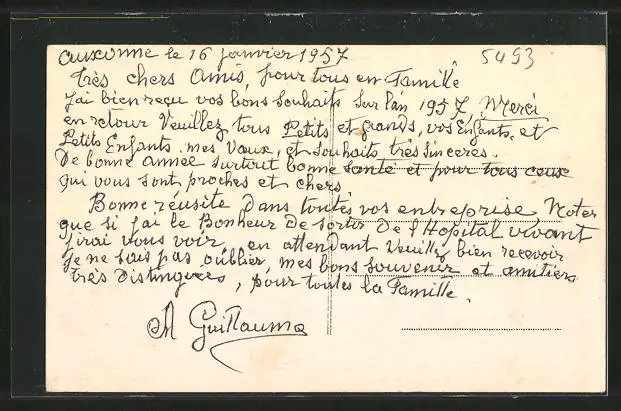 auxonne le 16 janvier 1957
5493
très chers Amis, pour tous en Famille
J'ai bien reçu vos bons souhaits sur l'an 1957, Merci
en retour Veuillez, tous Petits et grands, vos Enfants, et
Petits Enfants, mes Vœux, et souhaits très sinceres.
De bonne année surtout bonne santé et pour tous ceux
qui vous sont proches et chers
Bonne réusite Dans toutes vos entreprise Noter
que si j'ai le Bonheur De sortir De l'Hopital vivant
J'irai vous voir, en attendant Veuillez bien recevoir
Je ne sais pas oublier, mes bons souvenir et amitiers
très Distingueés, pour toutes la Famille.
A Guillaume